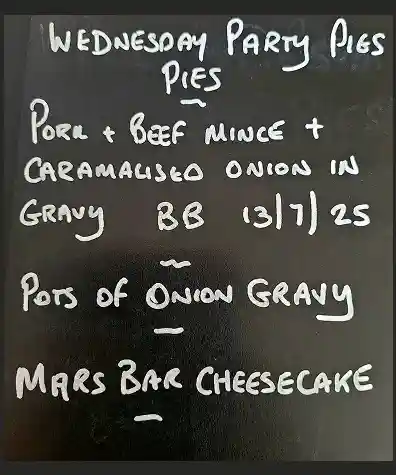 WEDNESDAY PARTY PIGS
PIES
PORK + BEEF MINCE +
CARAMALISED ONION IN
GRAVY BB 13/7/25
POTS OF ONION GRAVY
MARS BAR CHEESECAKE